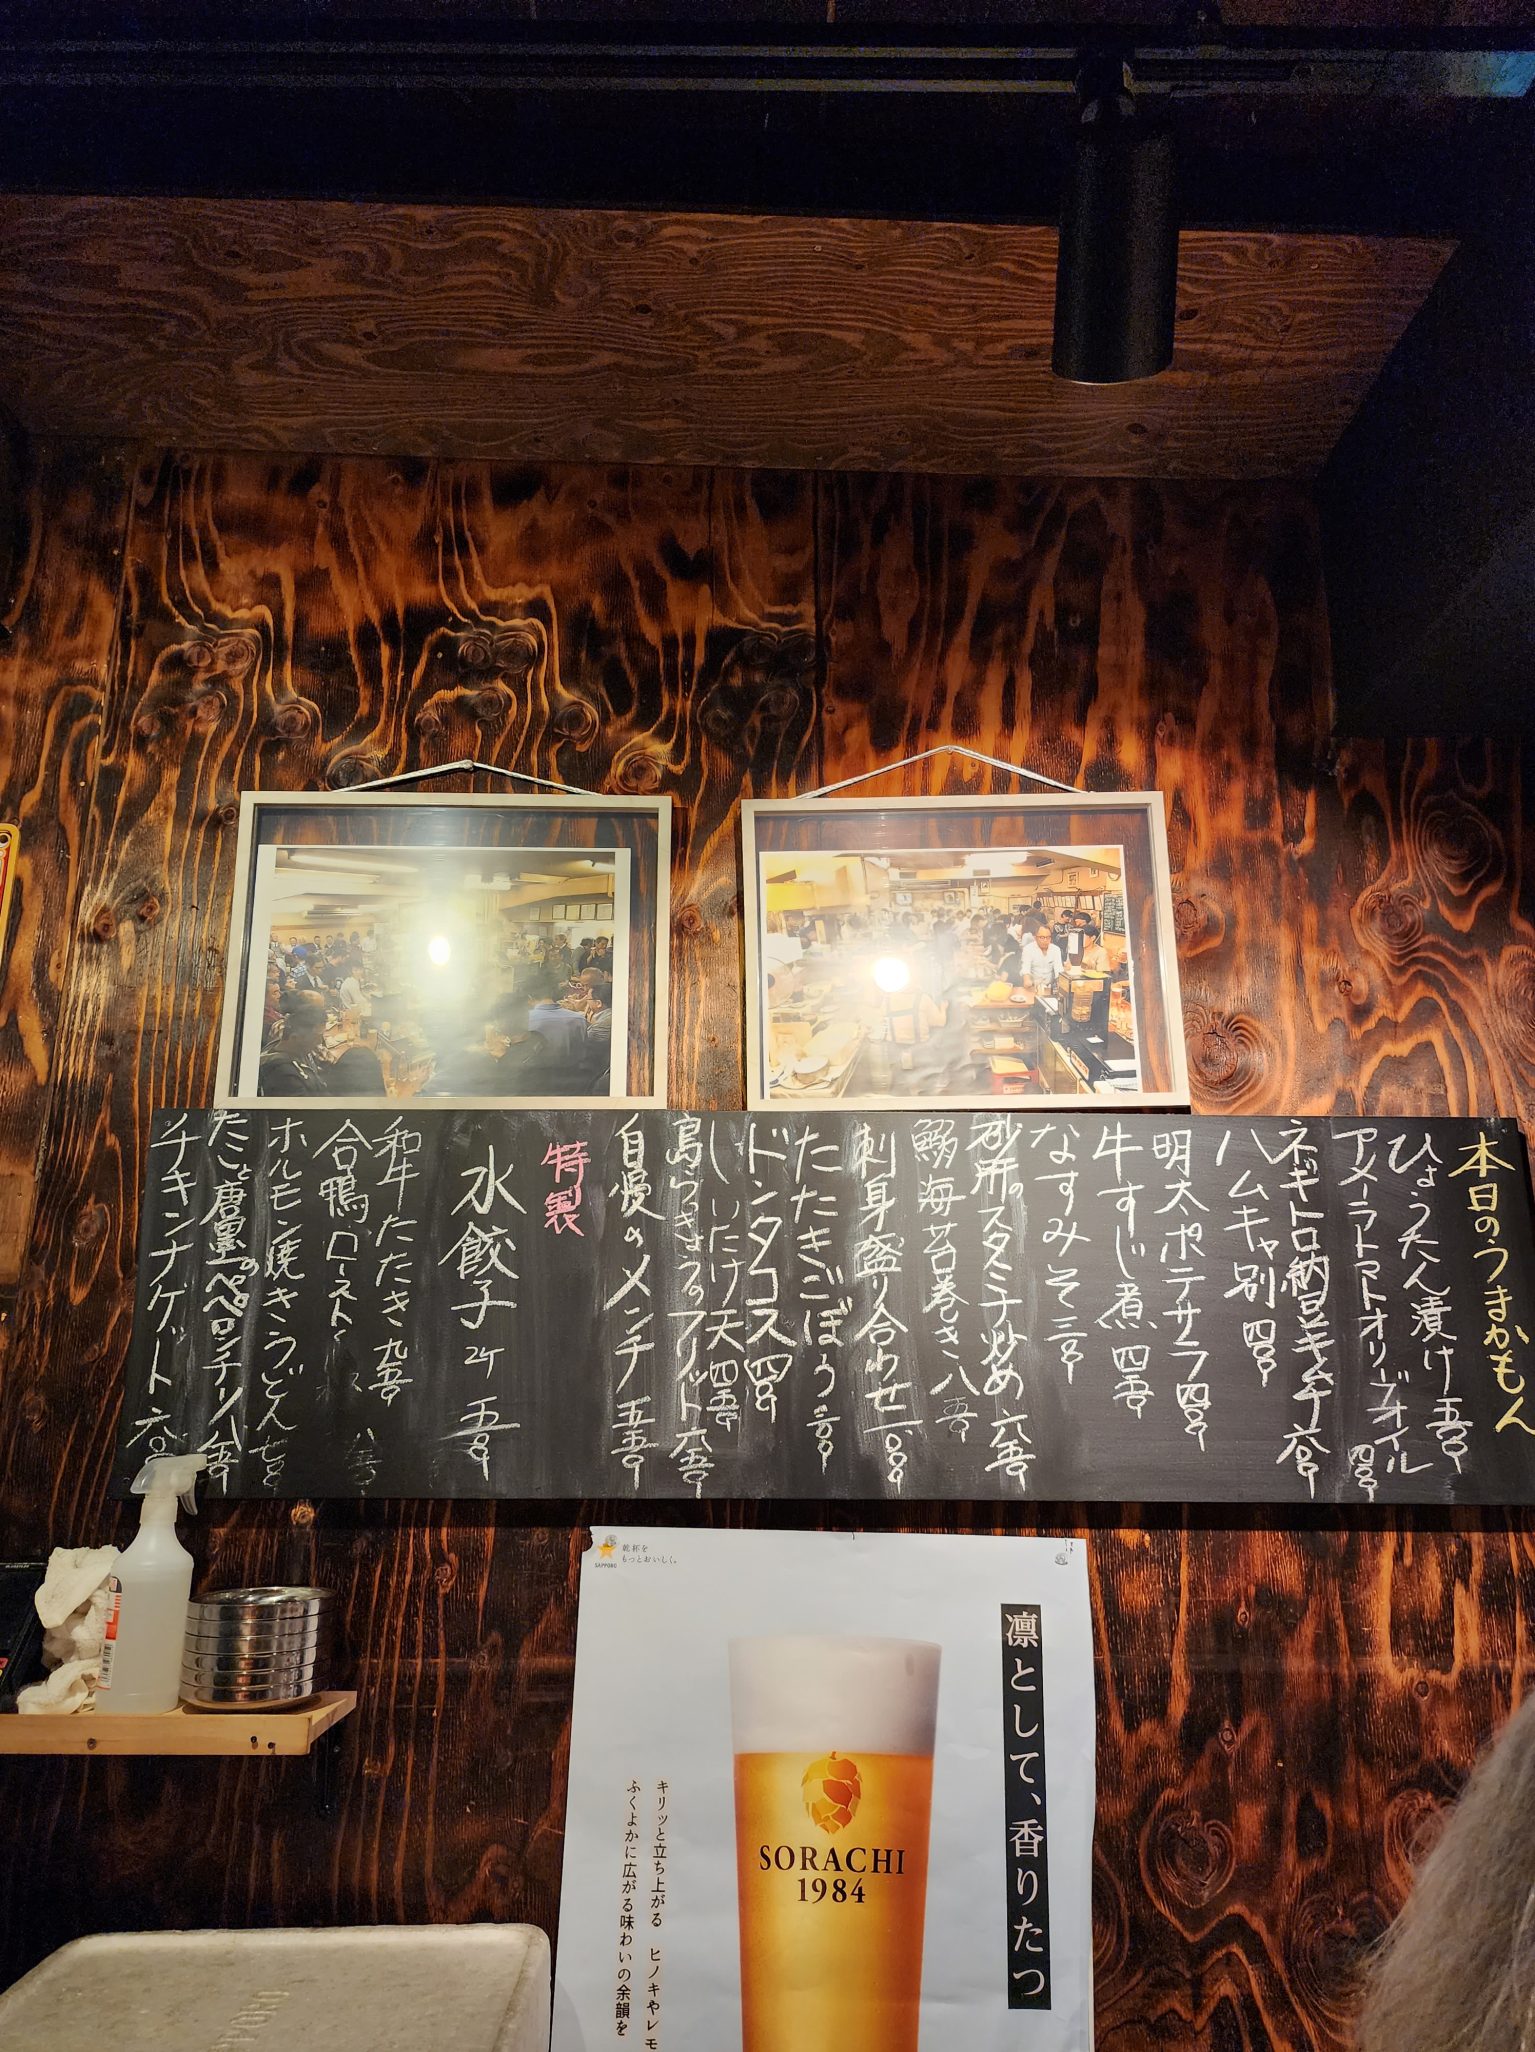 本日のうまかもん
ひょうたん漬け 五五〇
アメーラトマトオリーブオイル 四五〇
ネギトロ納豆キムチ 六五〇
ハムキャ別 四五〇
明太ポテサラ 四五〇
牛すじ煮 四五〇
なすみそ 三五〇
砂肝のスタミナ炒め 六五〇
鰯海苔巻き 八五〇
刺身盛り合わせ
たたきごぼう
ドンタコス 四五〇
しいたけ天 四五〇
島らっきょうのフリット 六五〇
自慢のメンチ 五五〇
特製
水餃子 2ケ
和牛たたき 九五〇
合鴨ロースト 八五〇
ホルモン焼きうどん
たこと唐墨のペペロンチーノ 八五〇
チキンナゲット
SAPPORO
乾杯を
もっとおいしく。
凛として、香りたつ
キリッと立ち上がる ヒノキやレモ
ふくよかに広がる味わいの余韻を
SORACHI
1984